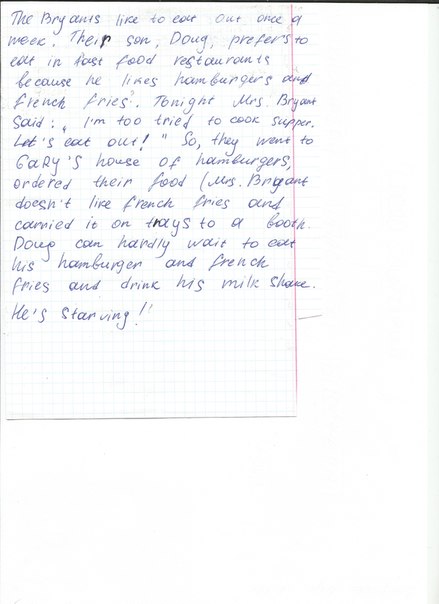 The Bryants like to eat out once a
week. Their son, Doug, prefers to
eat in fast food restaurants
because he likes hamburgers and
french fries. Tonight Mrs. Bryant
said: „ I'm too tried to cook supper.
Let's eat out! " So, they went to
GaRy's house of hamburgers,
ordered their food (Mrs. Bryant
doesn't like french fries and
carried it on trays to a booth.
Doug can hardly wait to eat
his hamburger and french
fries and drink his milk shake.
He's starving!